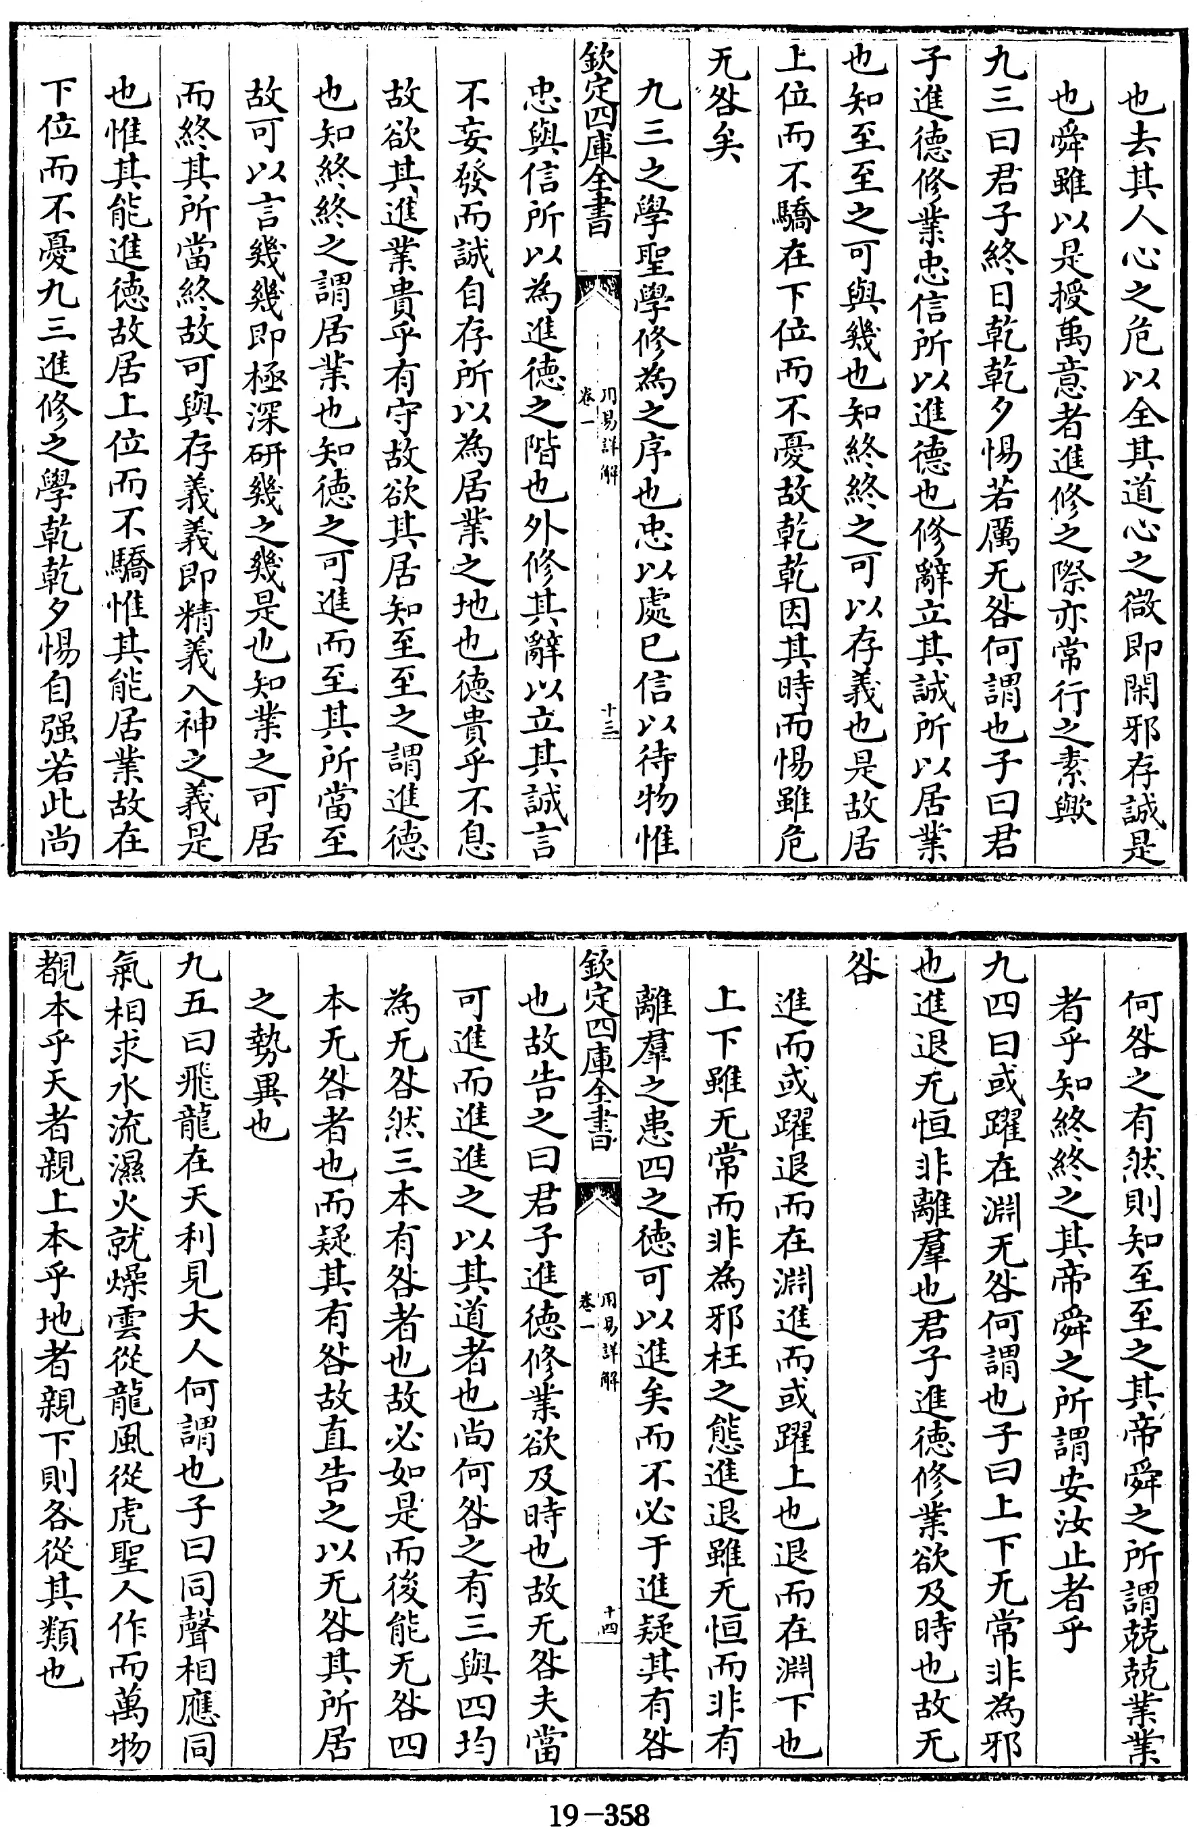 也去其人心之危以全其道心之微即閑邪存誠是
也舜雖以是授禹意者進修之際亦常行之素歟
九三曰君子終日乾乾夕惕若厲无咎何謂也子曰君
子進德修業忠信所以進德也修辭立其誠所以居業
也知至至之可與幾也知終終之可以存義也是故居
上位而不驕在下位而不憂故乾乾因其時而惕雖危
无咎矣
九三之學聖學修為之序也忠以處已信以待物惟
欽定四庫全書
周易詳解
卷一
十三
忠與信所以為進德之階也外修其辭以立其誠言
不妄發而誠自存所以為居業之地也德貴乎不息
故欲其進業貴乎有守故欲其居知至至之謂進德
也知終終之謂居業也知德之可進而至其所當至
故可以言幾幾即極深研幾之幾是也知業之可居
而終其所當終故可與存義義即精義入神之義是
也惟其能進德故居上位而不驕惟其能居業故在
下位而不憂九三進修之學乾乾夕惕自强若此尚
何咎之有然則知至至之其帝舜之所謂兢兢業業
者乎知終終之其帝舜之所謂安汝止者乎
九四曰或躍在淵无咎何謂也子曰上下无常非為邪
也進退无恒非離羣也君子進德修業欲及時也故无
咎
進而或躍退而在淵進而或躍上也退而在淵下也
上下雖无常而非為邪枉之態進退雖无恒而非有
離羣之患四之德可以進矣而不必于進疑其有咎
欽定四庫全書
周易詳解
卷一
十四
也故告之曰君子進德修業欲及時也故无咎夫當
可進而進進之以其道者也尚何咎之有三與四均
為无咎然三本有咎者也故必如是而後能无咎四
本无咎者也而疑其有咎故直告之以无咎其所居
之勢異也
九五曰飛龍在天利見大人何謂也子曰同聲相應同
氣相求水流濕火就燥雲從龍風從虎聖人作而萬物
覩本乎天者親上本乎地者親下則各從其類也
19-358